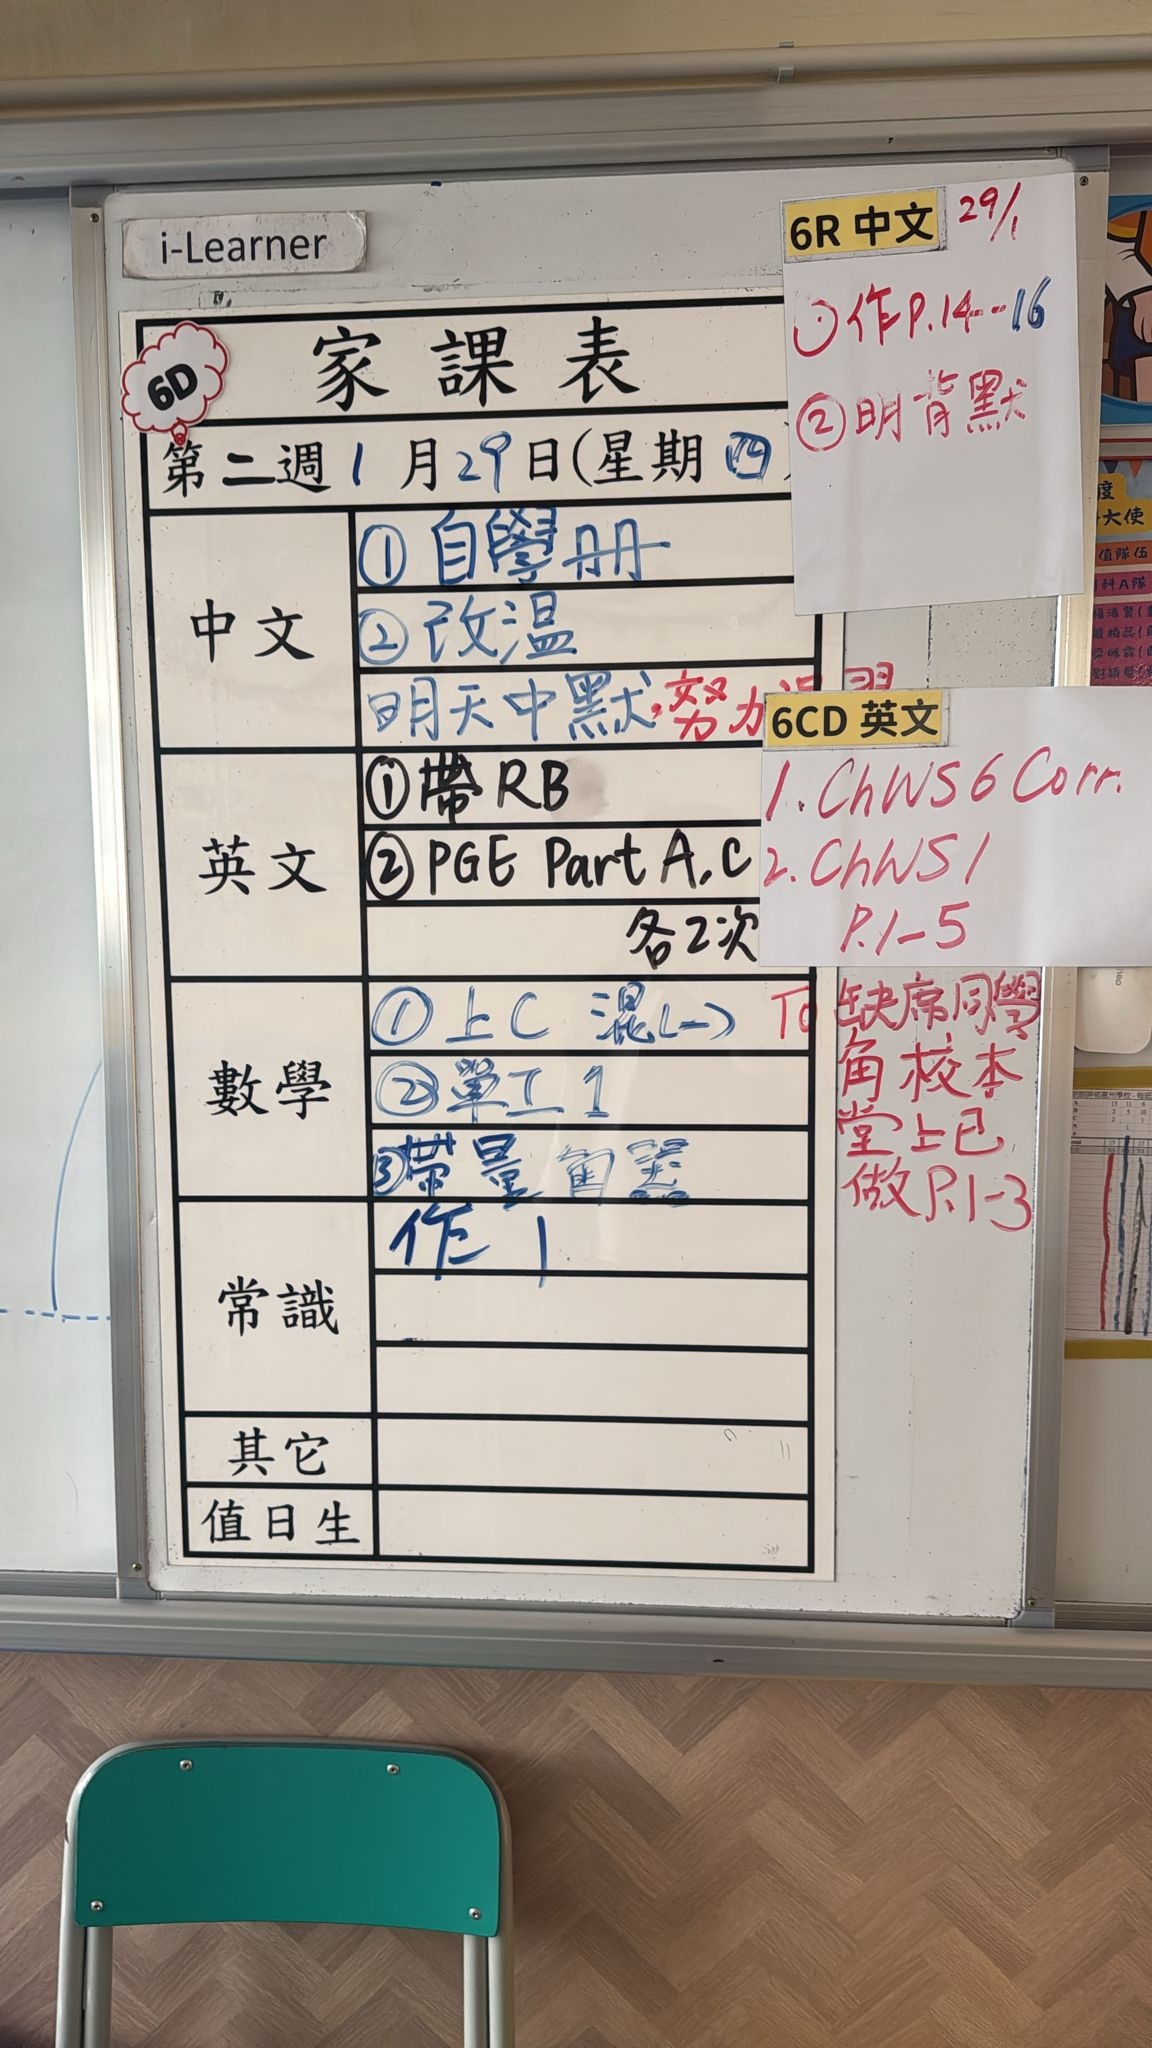 i-Learner
6D
家課表
第二週 1月29日(星期四)
中文
① 自學冊
② 改溫
明天中默,努力溫習
英文
① 帶RB
② PGE Part A,C
各2次
數學
① 上C 混(一)
② 單工1
③ 帶量角器
常識
作 1
其它
值日生
6R 中文 29/1
① 作P.14--16
② 明背默
6CD 英文
1. ChWS6 Corr.
2. ChWS1
P.1-5
To缺席同學
角校本
堂上已
做P.1-3
大使
值隊伍
科A隊